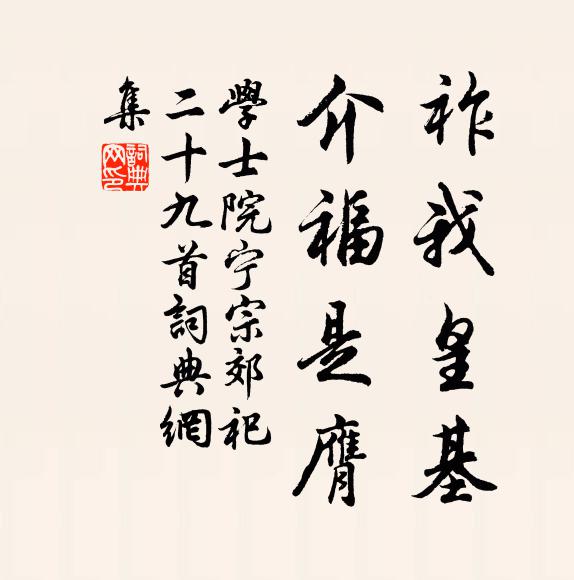 祚我皇基
介福是膺
學士院宁宗郊祀
二十九首詞典網
集
詞典網印